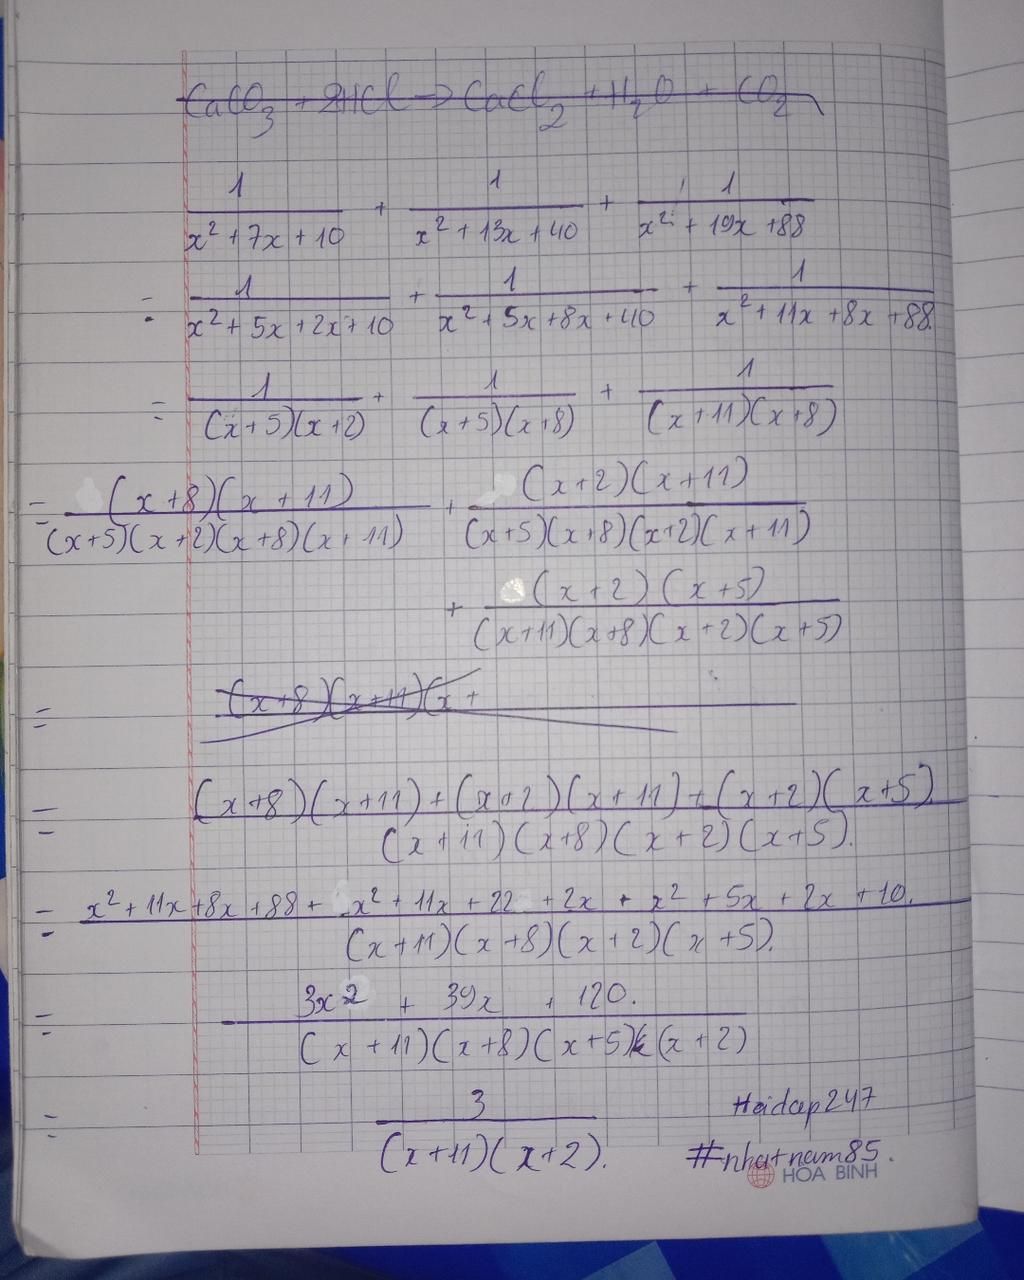 CaCO₃ + 2HCl → CaCl₂ + H₂O + CO₂
1/(x² + 7x + 10) + 1/(x² + 13x + 40) + 1/(x² + 19x + 88)
= 1/(x² + 5x + 2x + 10) + 1/(x² + 5x + 8x + 40) + 1/(x² + 11x + 8x + 88)
= 1/((x+5)(x+2)) + 1/((x+5)(x+8)) + 1/((x+11)(x+8))
= (x+8)(x+11)/((x+5)(x+2)(x+8)(x+11)) + (x+2)(x+11)/((x+5)(x+8)(x+2)(x+11))
+ (x+2)(x+5)/((x+11)(x+8)(x+2)(x+5))
= (x+8)(x+11)(x+
= ((x+8)(x+11)+(x+2)(x+11)+(x+2)(x+5))/((x+11)(x+8)(x+2)(x+5)).
= (x² + 11x + 8x + 88 + x² + 11x + 22 + 2x + x² + 5x + 2x + 10.)/((x+11)(x+8)(x+2)(x+5)).
= (3x² + 39x + 120.)/((x+11)(x+8)(x+5)(x+2))
= 3/((x+11)(x+2)).
Hoidap247
#nhatnam85.
HÒA BÌNH